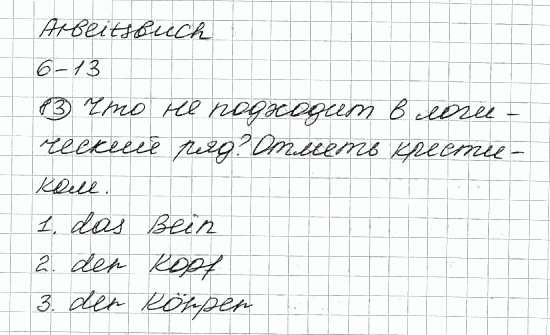 Arbeitsbuch
6-13
13 Что не подходит в логи-
ческий ряд? Отметь крести-
ком.
1. das Bein
2. der Kopf
3. der Körper